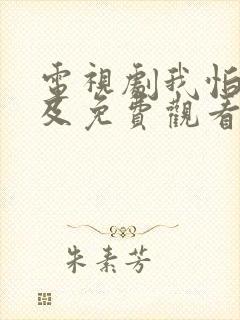 電視劇我怕
及免費觀看
朱素芳